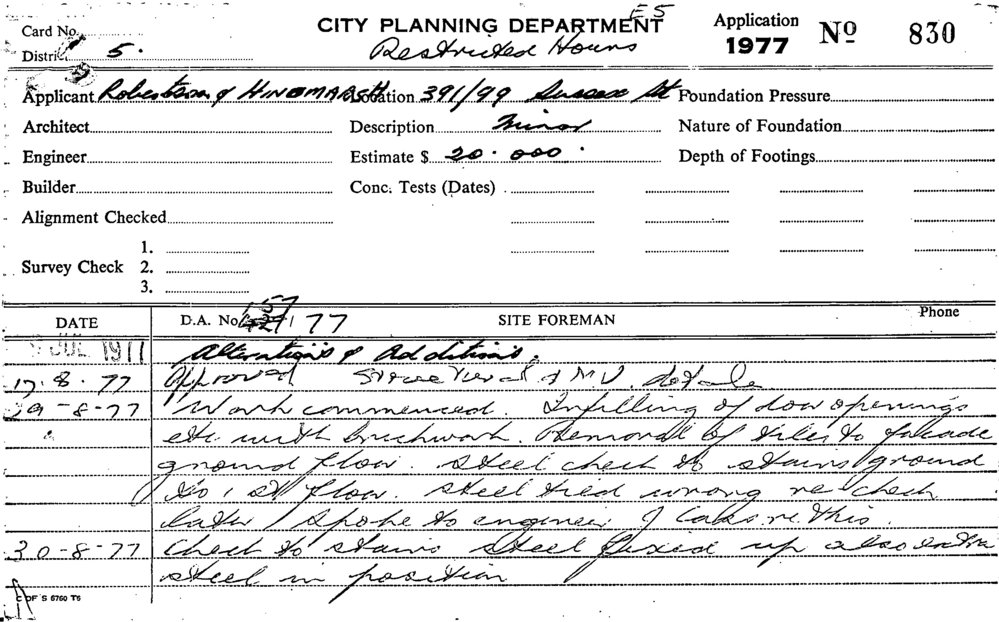 Card No.
CITY PLANNING DEPARTMENT
Application
1977
No 830
District 5.
Restricted Hours
Applicant Robertson & HINDMARSH Location 391/99 Sussex St Foundation Pressure
Architect Description Minor Nature of Foundation
Engineer Estimate $ 20.000. Depth of Footings
Builder Conc. Tests (Dates)
Alignment Checked
1.
Survey Check 2.
3.
DATE D.A. No. /77 SITE FOREMAN Phone
JUL 1977 Alterations & Additions.
17.8.77 Approved Structural & M.V. details
29-8-77 Work commenced. Infilling of door openings
etc. with brickwork. Removal of tiles to facade
ground floor. Steel check to stairs ground
to 1st floor. Steel tied wrong re check
later spoke to engineer re this.
30-8-77 Check to stairs steel fixed up also extra
steel in position
C OF S 6760 T5